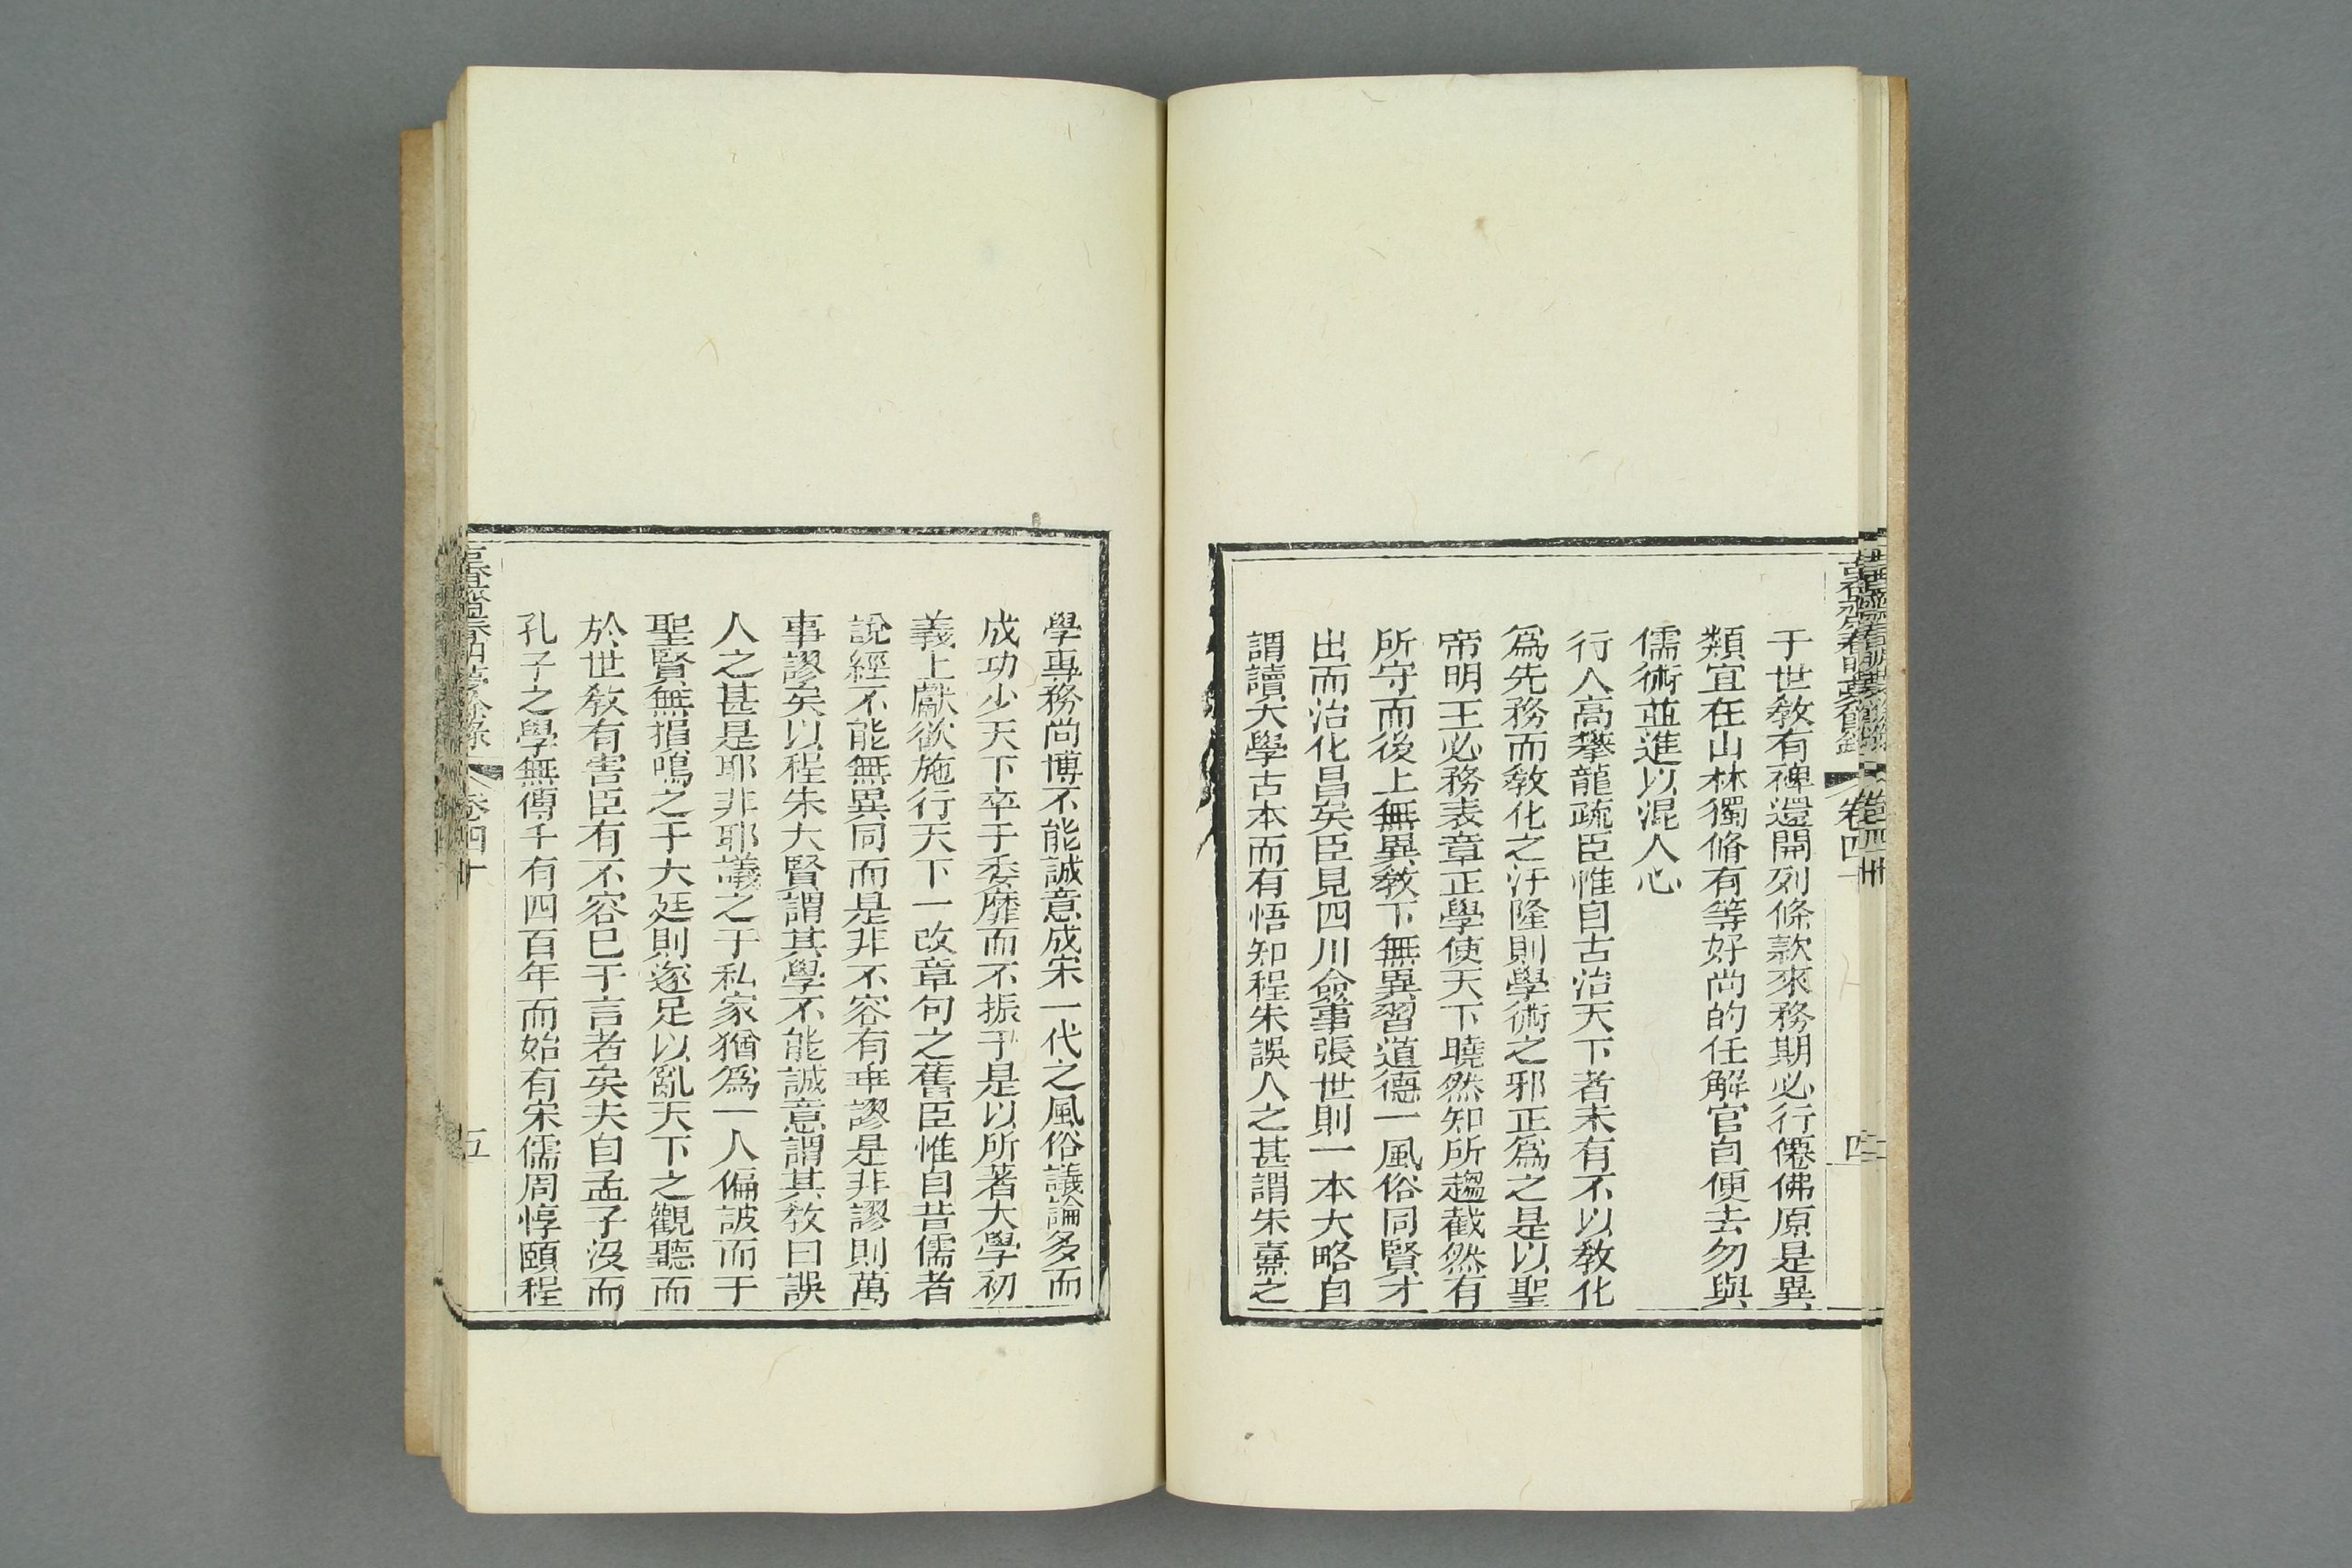 古香齋春明夢餘錄
卷四十
四
于世敎有裨還開列條款來務期必行僊佛原是異
類宜在山林獨脩有等好尚的任解官自便去勿與
儒術並進以混人心
行人高攀龍疏臣惟自古治天下者未有不以敎化
爲先務而敎化之汙隆則學術之邪正爲之是以聖
帝明王必務表章正學使天下曉然知所趨截然有
所守而後上無異敎下無異習道德一風俗同賢才
出而治化昌矣臣見四川僉事張世則一本大略自
謂讀大學古本而有悟知程朱誤人之甚謂朱熹之
學專務尚博不能誠意成宋一代之風俗議論多而
成功少天下卒于委靡而不振于是以所著大學初
義上獻欲施行天下一改章句之舊臣惟自昔儒者
說經不能無異同而是非不容有乖謬是非謬則萬
事謬矣以程朱大賢謂其學不能誠意謂其敎曰誤
人之甚是耶非耶議之于私家猶爲一人偏詖而于
聖賢無損鳴之于大廷則遂足以亂天下之觀聽而
於世敎有害臣有不容已于言者矣夫自孟子沒而
孔子之學無傳千有四百年而始有宋儒周惇頤程
古香齋春明夢餘錄
卷四十
五